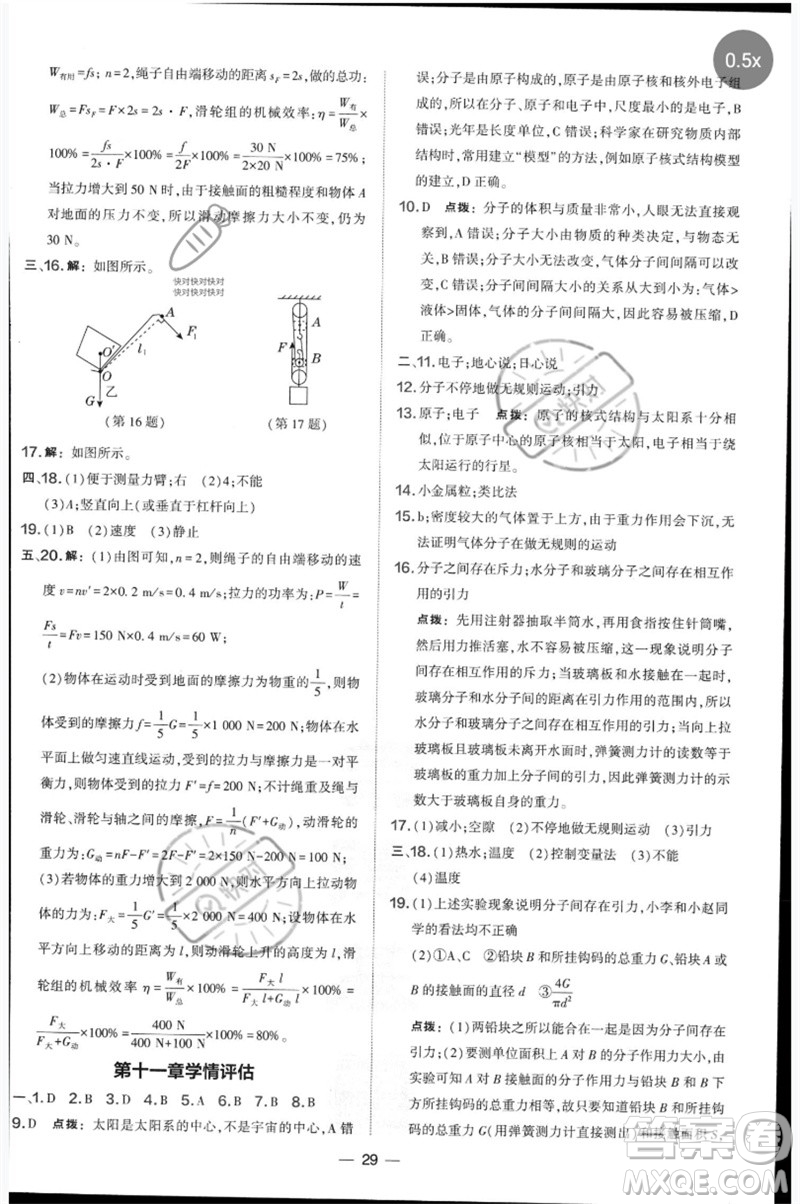 0.5x
W有用=fs;n=2,绳子自由端移动的距离 sF=2s,做的总功:
W总=FsF=F×2s=2s·F,滑轮组的机械效率:η=W有用/W总×
100%=fs/2s·F×100%=f/2F×100%=30 N/2×20 N×100%=75%;
当拉力增大到 50 N 时,由于接触面的粗糙程度和物体 A
对地面的压力不变,所以滑动摩擦力大小不变,仍为
30 N。
三、16.解:如图所示。
快对快对快对
快对快对快对
A
F1
O′
l1
O
乙
G
(第 16 题)
A
F
B
(第 17 题)
17.解:如图所示。
四、18.(1)便于测量力臂;右 (2)4;不能
(3)A;竖直向上(或垂直于杠杆向上)
19.(1)B (2)速度 (3)静止
五、20.解:(1)由图可知,n=2,则绳子的自由端移动的速
度 v=nv′=2×0.2 m/s=0.4 m/s;拉力的功率为:P=W/t=
Fs/t=Fv=150 N×0.4 m/s=60 W;
(2)物体在运动时受到地面的摩擦力为物重的1/5,则
物体受到的摩擦力 f=1/5G=1/5×1 000 N=200 N;物体在水
平面上做匀速直线运动,受到的拉力与摩擦力是一对平
衡力,则物体受到的拉力 F′=f=200 N;不计绳重及绳与
滑轮、滑轮与轴之间的摩擦,F=1/n(F′+G动),动滑轮的
重力为:G动=nF-F′=2F-F′=2×150 N-200 N=100 N;
(3)若物体的重力增大到 2 000 N,则水平方向上拉动物
体的力为:F大=1/5G′=1/5×2 000 N=400 N;设物体在水
平方向上移动的距离为 l,动滑轮上升的高度为 l,滑
轮组的机械效率 η=W有/W总×100%=F大l/F大l+G动l×100%=
F大/F大+G动×100%=400 N/400 N+100 N×100%=80%。
第十一章学情评估
一、1.D 2.B 3.D 4.B 5.A 6.B 7.B 8.B
9.D 点拨:太阳是太阳系的中心,不是宇宙的中心,A 错
误;分子是由原子构成的,原子是由原子核和核外电子组
成的,所以在分子、原子和电子中,尺度最小的是电子,B
错误;光年是长度单位,C 错误;科学家在研究物质内部
结构时,常用建立“模型”的方法,例如原子核式结构模型
的建立,D 正确。
10.D 点拨:分子的体积与质量非常小,人眼无法直接观
察到,A 错误;分子由物质的种类决定,与物态无
关,B 错误;气体分子间间隔可以改变,
C 错误;分子间间隔的大小关系从大到小为:气体>
液体>固体,气体的分子间间隔大,因此可以被压缩,D
正确。
二、11.电子;地心说;日心说
12.分子不停地做无规则运动;引力
13.原子;电子 点拨:原子的核式结构与太阳系十分相
似,位于原子中心的原子核相当于太阳,电子相当于绕
太阳运行的行星。
14.小金属粒;类比法
15.b;密度较大的气体置于上方,由于重力作用会下沉,无
法证明气体分子在做无规则的运动
16.分子之间存在斥力;水分子和玻璃分子之间存在相互作
用的引力
点拨:先用注射器抽取半筒水,再用食指按住针筒嘴,
然后用力推活塞,水不容易被压缩,这一现象说明分子
间存在相互作用的斥力;当玻璃板和水接触在一起时,
玻璃分子和水分子间的距离在引力作用的范围内,所以
水分子和玻璃分子之间存在相互作用的引力;当向上拉
弹簧测力计且玻璃板未离开水面时,弹簧测力计的读数等于玻
璃板的重力加上分子间的引力,因此弹簧测力计的示数大于玻璃板自身的重力。
17.(1)减小;空隙 (2)不停地做无规则运动 (3)引力
三、18.(1)热水;温度 (2)控制变量法 (3)不能
(4)温度
19.(1)上述实验现象说明分子间存在引力,小李和小赵同
学的看法均不正确
(2)①A、C ②铅块 B 和所挂钩码的总重力 G、铅块 A 和
B 的接触面的直径 d ③4G/πd²
点拨:(1)两铅块之所以能结合在一起,是因为分子间存在
引力;(2)要测单位面积上 A 对 B 的分子作用力大小,由
实验可知要知道铅块 B 和所挂钩码的总重力 G 和铅块 A、B
的接触面积 S,铅块 B 和
所挂钩码的总重力 G(用弹簧测力计直接测出)和接触面积 S,
29
答案圈
MXQE.COM